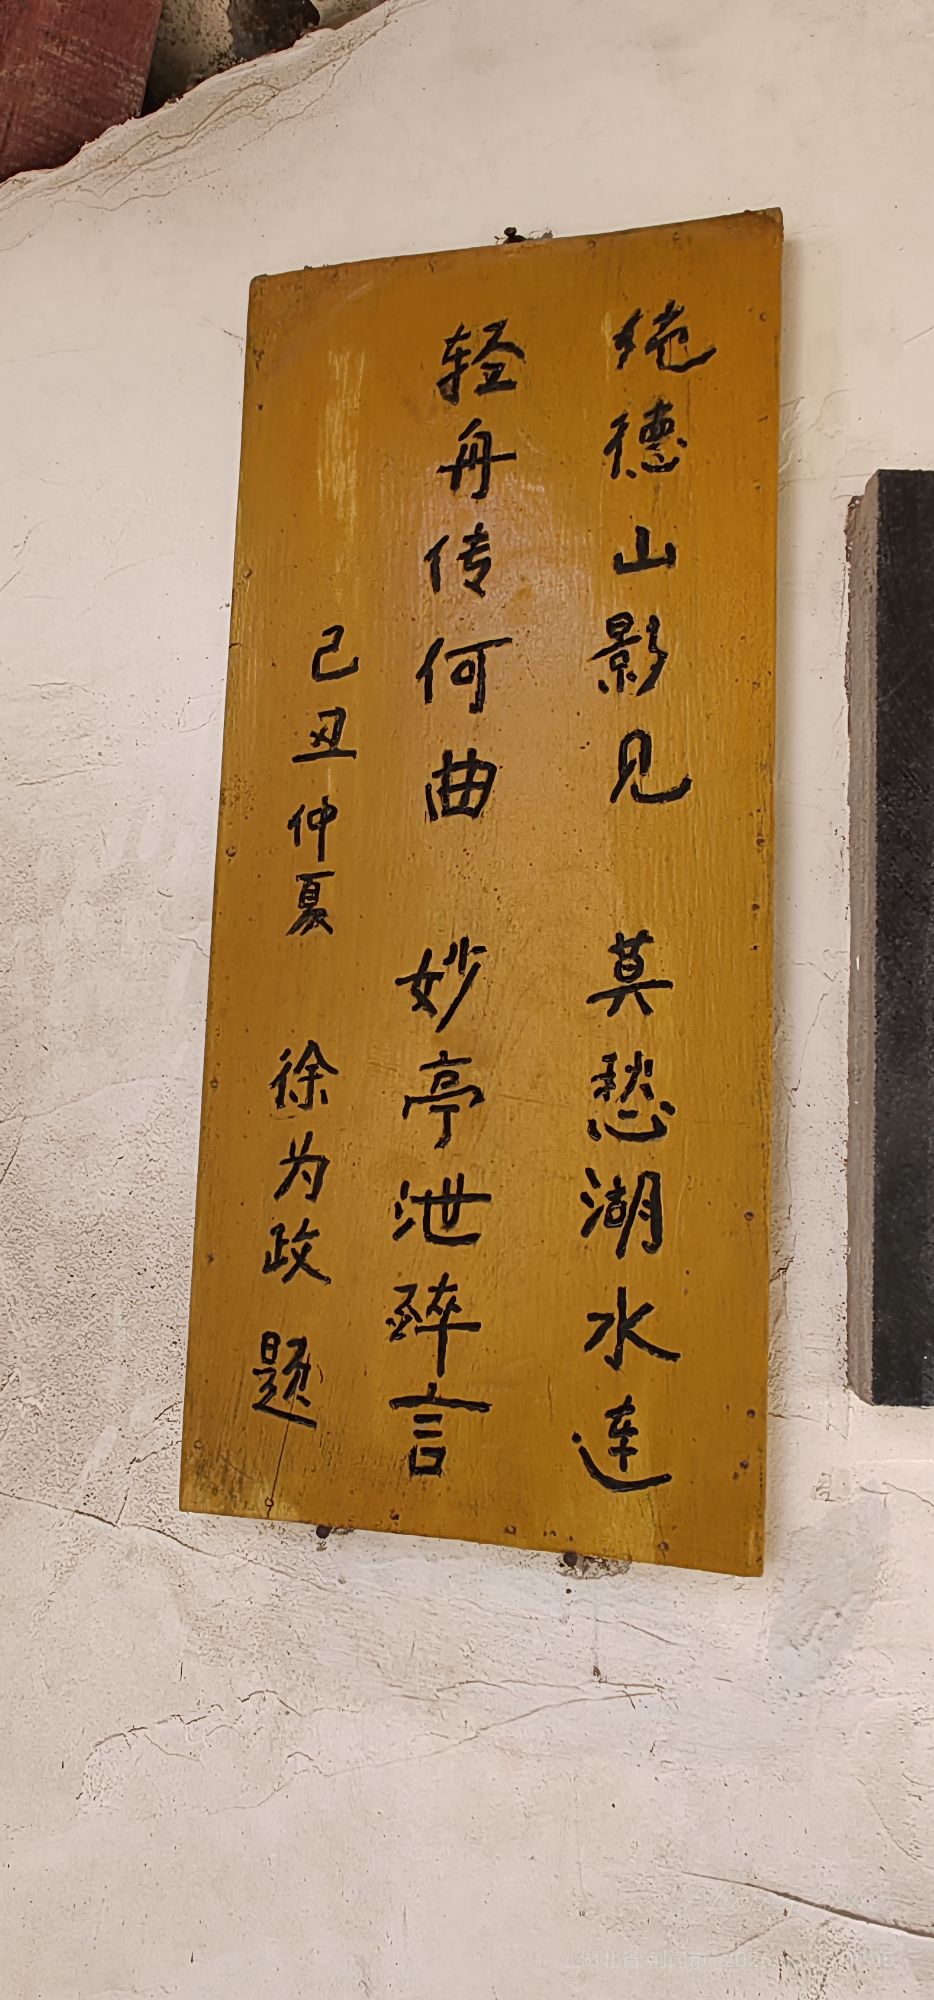 纯德山影见 莫愁湖水连
轻舟传何曲 妙亭泄醉言
己丑仲夏 徐为政 题